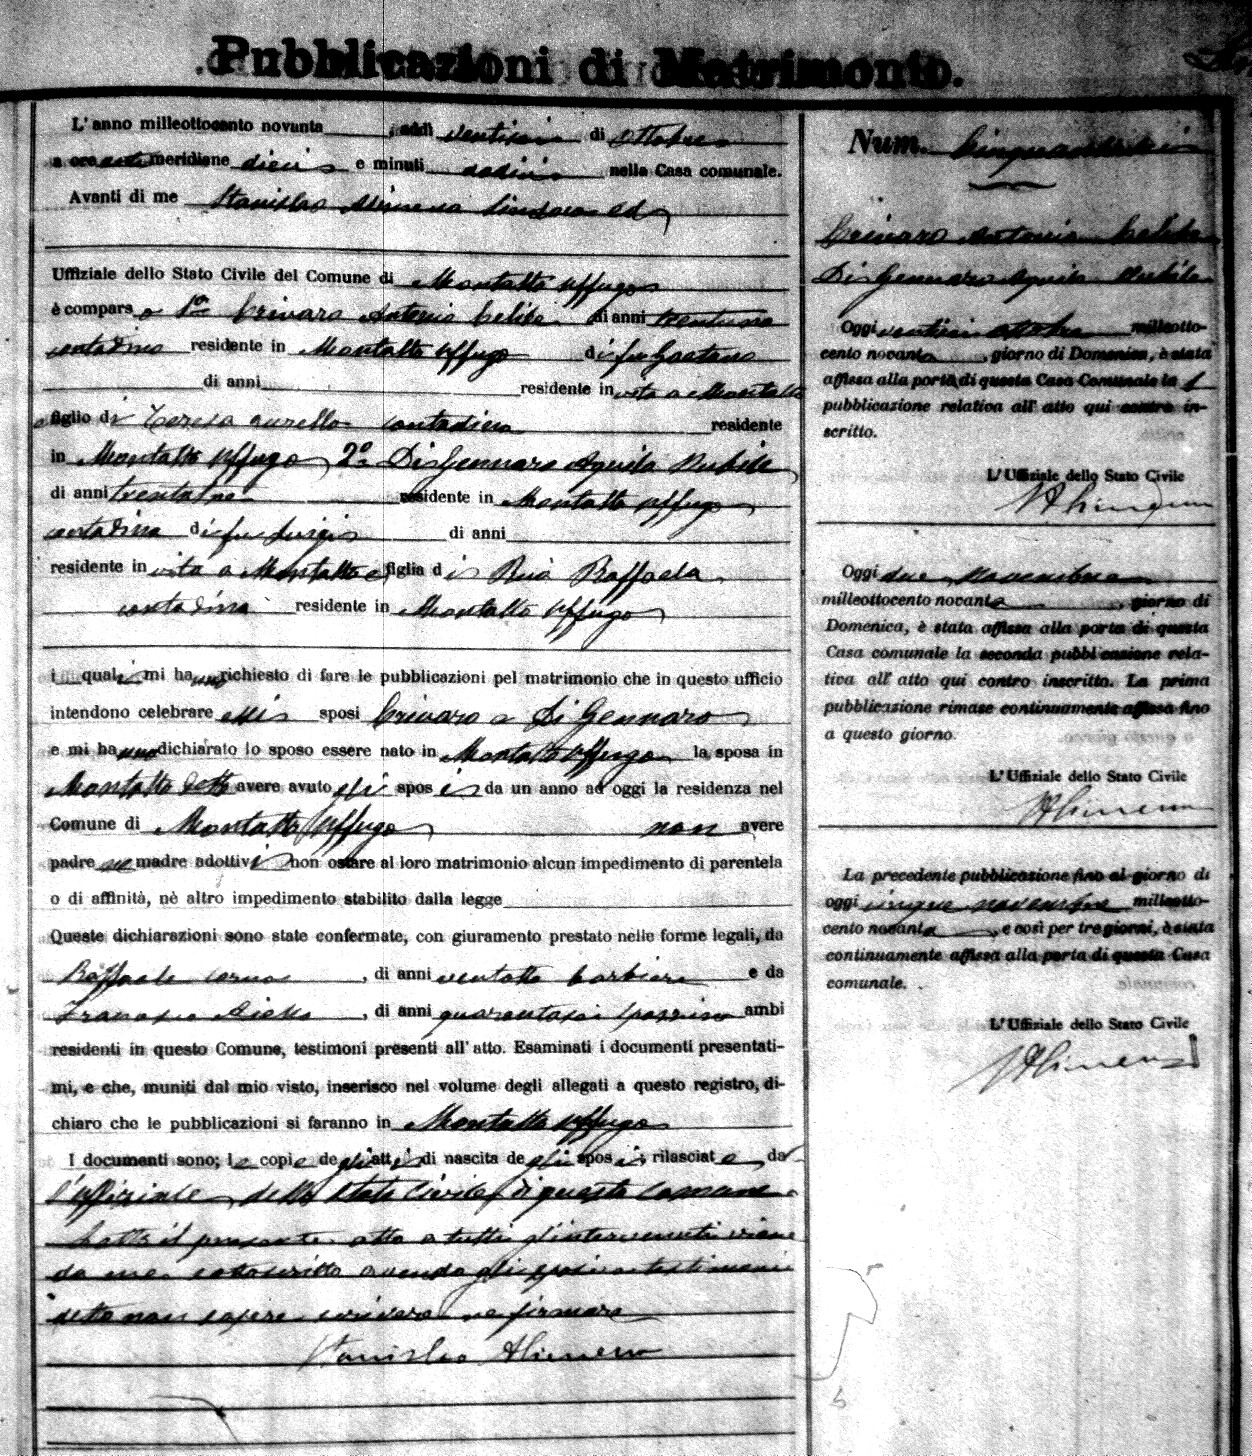 Pubblicazioni di Matrimonio.
L'anno milleottocento novanta, addì ventisei di ottobre
a ore antemeridiane dieci e minuti dodici nella Casa comunale.
Avanti di me Stanislao Alimena Sindaco ed
Uffiziale dello Stato Civile del Comune di Montalto Uffugo
è comparso 1º Crivaro Antonio di anni trentuno
contadino residente in Montalto Uffugo di fu Gaetano
di anni residente in vita a Montalto
figlio di Teresa Aurello contadina residente
in Montalto Uffugo, 2º Di Gennaro Aquila Nubile
di anni trentatre residente in Montalto Uffugo
contadina di fu Luigi di anni
residente in vita a Montalto e figlia di Raffaela
contadina residente in Montalto Uffugo
i quali mi hanno richiesto di fare le pubblicazioni pel matrimonio che in questo ufficio
intendono celebrare essi sposi Crivaro e Di Gennaro
e mi hanno dichiarato lo sposo essere nato in Montalto Uffugo la sposa in
Montalto detto avere avuto gli sposi da un anno ad oggi la residenza nel
Comune di Montalto Uffugo non avere
padre ne madre adottivi non ostare al loro matrimonio alcun impedimento di parentela
o di affinità, nè altro impedimento stabilito dalla legge
Queste dichiarazioni sono state confermate, con giuramento prestato nelle forme legali, da
Raffaele, di anni ventotto barbiere e da
Francesco Aiello, di anni quarantasei ambi
residenti in questo Comune, testimoni presenti all'atto. Esaminati i documenti presentati-
mi, e che, muniti dal mio visto, inserisco nel volume degli allegati a questo registro, di-
chiaro che le pubblicazioni si faranno in Montalto Uffugo
I documenti sono; le copie degli atti di nascita degli sposi rilasciate dal
l'uffiziale dello Stato Civile di questo Comune
Letto il presente atto a tutti gl'intervenuti viene
da me sottoscritto avendo gli sposi e testimoni
detto non sapere scrivere ne firmare
Stanislao Alimena
Num. Cinquantasei
Crivaro Antonio
Di Gennaro Aquila Nubile
Oggi ventisei ottobre milleotto-
cento novanta, giorno di Domenica, è stata
affissa alla porta di questa Casa Comunale la 1
pubblicazione relativa all'atto qui contro in-
scritto.
L'Uffiziale dello Stato Civile
SAlimena
Oggi due novembre
milleottocento novanta, giorno di
Domenica, è stata affissa alla porta di questa
Casa comunale la seconda pubblicazione rela-
tiva all'atto qui contro inscritto. La prima
pubblicazione rimase continuamente affissa fino
a questo giorno.
L'Uffiziale dello Stato Civile
SAlimena
La precedente pubblicazione fino al giorno di
oggi cinque novembre milleotto-
cento novanta, e così per tre giorni, è stata
continuamente affissa alla porta di questa Casa
comunale.
L'Uffiziale dello Stato Civile
SAlimena